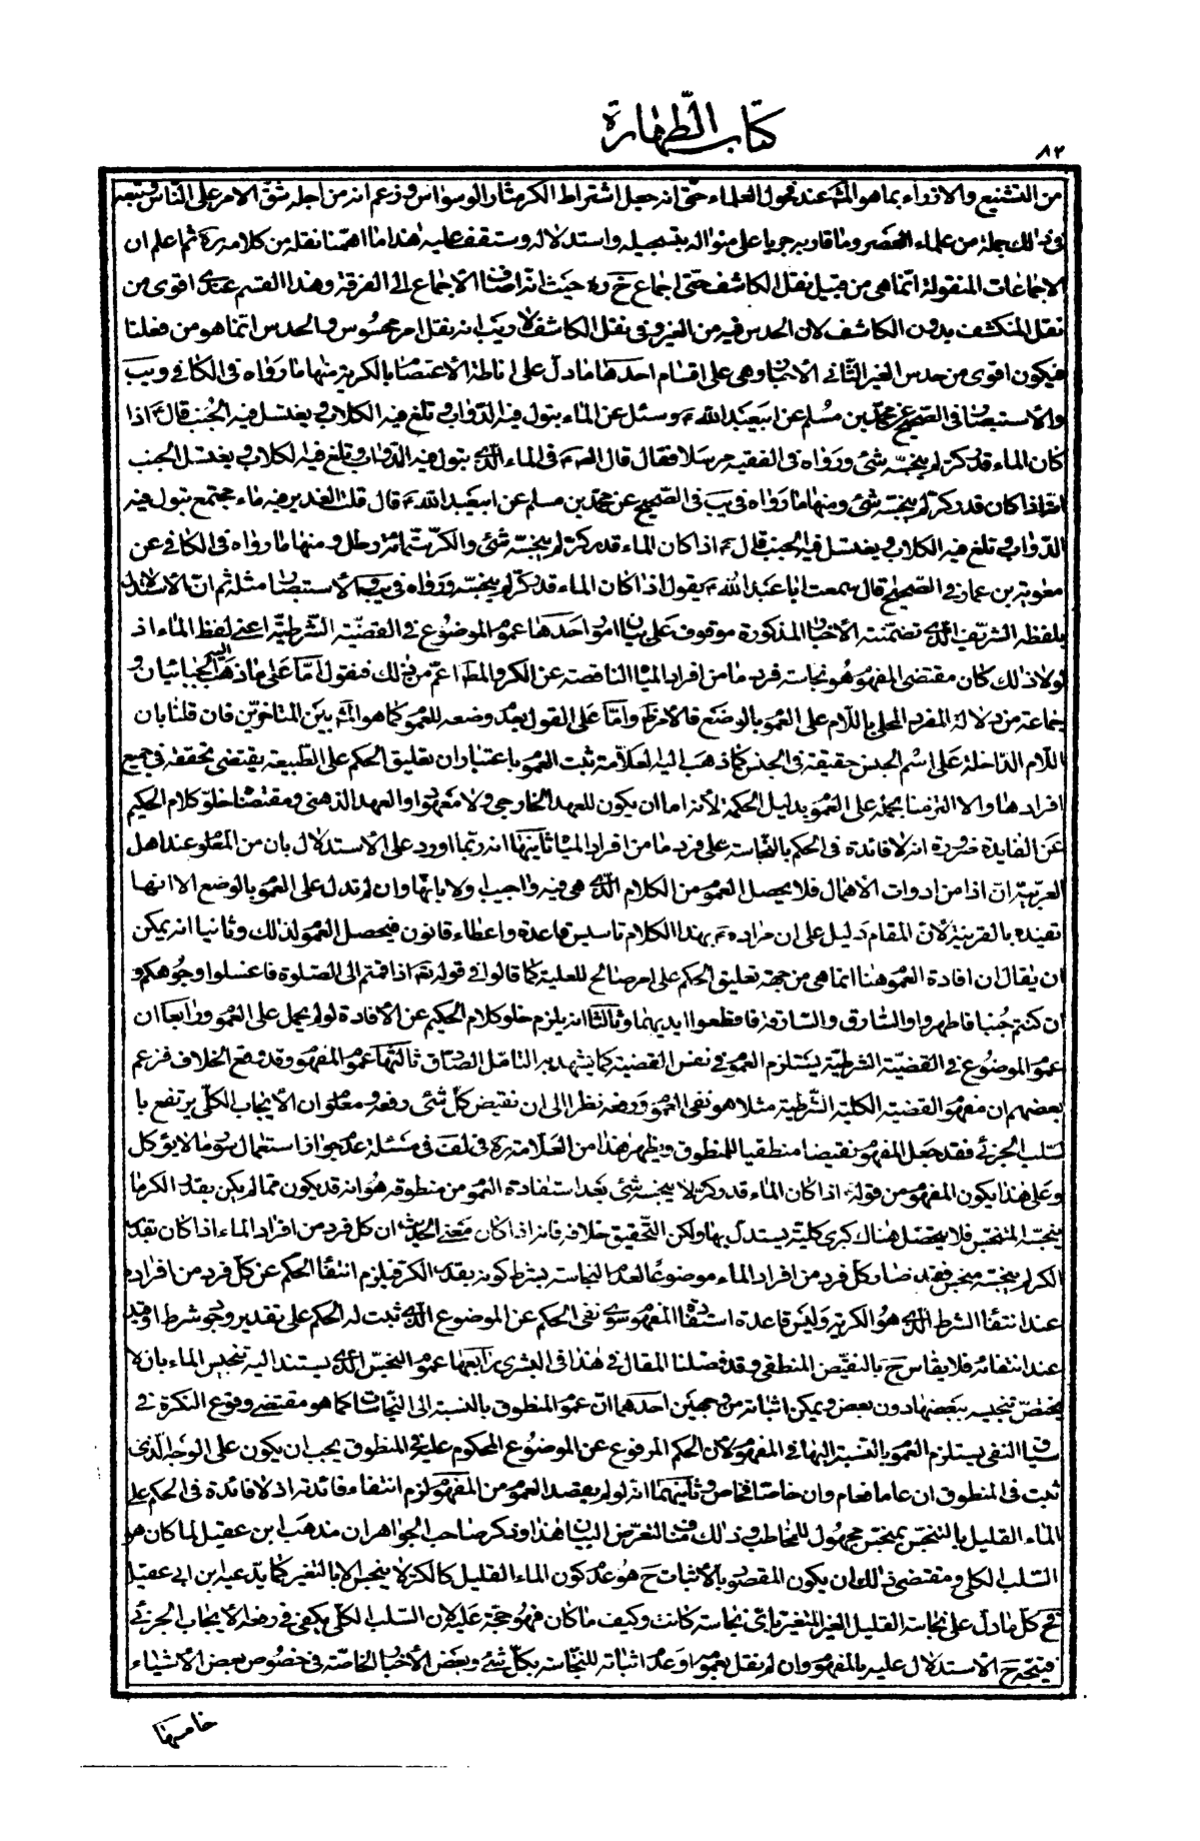 كتاب الطهارة
٨٢
من التشنيع والازراء بما هو المشهور عند فحول العلماء حتى انه جعل اشتراط الكر مثار الوسواس وزعم انه من اجله شق الامر على الناس وتبعه
فى ذلك جملة من علماء العصر وما قاربه جريا على منواله بتسجيله واستدلاله وستقف عليه هذا ما اهمنا نقله من كلامه ره ثم اعلم ان
الاجماعات المنقولة انما هى من قبيل نقل الكاشف حتى اجماع خ ره حيث انه اضاف الاجماع الى الفرقة وهذا القسم عندى اقوى من
نقل المنكشف بدون الكاشف لان الحدس فيه من الغير وفى نقل الكاشف لا ريب انه نقل امر محسوس والحدس انما هو من فعلنا
فيكون اقوى من حدس الغير الثانى الاخبار وهى على اقسام احدها ما دل على اناطة الاعتصام بالكرية منها ما رواه فى الكافى ويب
والاستبصار فى الصحيح عن محمد بن مسلم عن ابيعبد الله ع وسئل عن الماء بتول فيه الدواب وتلغ فيه الكلاب ويغتسل فيه الجنب قال ع اذا
كان الماء قدر كر لم ينجسه شئ ورواه فى الفقيه مرسلا فقال قال الصادق ع فى الماء الذى بتول فيه الدواب وتلغ فيه الكلاب ويغتسل الجنب
انه اذا كان قدر كر لم ينجسه شئ ومنها ما رواه فى يب فى الصحيح عن محمد بن مسلم عن ابيعبد الله ع قال قلت الغدير فيه ماء مجتمع بتول فيه
الدواب وتلغ فيه الكلاب ويغتسل فيه الجنب قال ع اذا كان الماء قدر كر لم ينجسه شئ والكر ستمائة رطل ومنها ما رواه فى الكافى عن
معوية بن عمار فى الصحيح قال سمعت ابا عبد الله ع يقول اذا كان الماء قدر كر لم ينجسه ورواه فى يب والاستبصار مثله ثم ان الاستدلال
بلفظه الشريف الذى تضمنته الاخبار المذكورة موقوف على بيان امور احدها عموم الموضوع فى القضية الشرطية اعنى لفظ الماء اذ
لولا ذلك كان مقتضى المفهوم هو نجاسة فرد ما من افراد المياه الناقصة عن الكر والمط اعم من ذلك فنقول اما على ما ذهب اليه الجبائيان و
جماعة من دلالة المفرد المحلى باللام على العموم بالوضع فالامر ظ واما على القول بعدم وضعه للعموم كما هو المشهور بين المتاخرين فان قلنا بان
اللام الداخلة على اسم الجنس حقيقة فى الجنس كما ذهب اليه العلامة ثبت العموم باعتبار ان تعليق الحكم على الطبيعة يقتضى تحققه فى جميع
افرادها والا التزمنا بحمله على العموم بدليل الحكمة لأنه اما ان يكون للعهد الخارجى ولا معهود او العهد الذهنى ومقتضاه خلو كلام الحكيم
عن الفايدة ضرورة انه لا فائدة فى الحكم بالنجاسة على فرد ما من افراد المياه ثانيها انه ربما اورد على الاستدلال بان من المعلوم عند اهل
العربية ان اذا من ادوات الاهمال فلا يحصل العموم من الكلام الذى هى فيه واجيب اولا بانها وان لم تدل على العموم بالوضع الا انها
تفيده بالقرينة لان المقام دليل على ان مراده ع بهذا الكلام تاسيس قاعدة واعطاء قانون فيحصل العموم لذلك وثانيا انه يمكن
ان يقال ان افادة العموم هنا انما هى من جهة تعليق الحكم على امر صالح للعلية كما قالوا فى قوله تعم اذا قمتم الى الصلوة فاغسلوا وجوهكم و
ان كنتم جنبا فاطهروا والسارق والسارقة فاقطعوا ايديهما وثالثا انه يلزم خلو كلام الحكيم عن الافادة لو لم يحمل على العموم ورابعا ان
عموم الموضوع فى القضية الشرطية يستلزم العموم فى نفس القضية كما يشهد به التامل الصادق ثالثها عموم المفهوم وقد وقع الخلاف فزعم
بعضهم ان مفهوم القضية الكلية الشرطية مثلا هو نفى العموم ورفعه نظرا الى ان نقيض كل شئ رفعه ومعلوم ان الايجاب الكلى يرتفع با
لسلب الجزئى فقد جعل المفهوم نقيضا منطقيا للمنطوق ويظهر هذا من العلامة ره فى لف فى مسئلة عدم جواز استعمال سؤر ما لا يؤكل
وعلى هذا يكون المفهوم من قوله ع اذا كان الماء قدر كر لا ينجسه شئ بعد استفادة العموم من منطوقه هو انه قد يكون مما لم يكن بقدر الكر ما
ينجسه المنجس فلا يتحصل هناك كبرى كلية يستدل بها ولكن التحقيق خلافه فانه اذا كان معنى الحديث ان كل فرد من افراد الماء اذا كان بقدر
الكر لم ينجسه منجس فقد صار كل فرد من افراد الماء موضوعا لعدم النجاسة بشرط كونه بقدر الكر فيلزم انتفاء الحكم عن كل فرد من افراده
عند انتفاء الشرط الذى هو الكرية وليس قاعدة استفادة المفهوم سوى نفى الحكم عن الموضوع الذى ثبت له الحكم على تقدير وجود شرط او قيد
عند انتفائه فلا يقاس ح بالنقيض المنطقى وقد فصلنا المقال فى هذا فى البشرى رابعها عموم النجس الذى يستند اليه تنجيس الماء بان لا
يختص تنجيسه ببعضها دون بعض ويمكن اثباته من وجهين احدهما ان عموم المنطوق بالنسبة الى النجاسات كما هو مقتضى وقوع النكرة فى
سياق النفى يستلزم العموم بالنسبة اليها فى المفهوم لأن الحكم المرفوع عن الموضوع المحكوم عليه فى المنطوق يجب ان يكون على الوجه الذى
ثبت فى المنطوق ان عاما فعام وان خاصا فخاص وثانيهما انه لو لم يقصد العموم من المفهوم لزم انتفاء فائدته اذ لا فائدة فى الحكم على
الماء القليل بالتنجس بمنجس مجهول للمخاطب وذلك مناف لغرض البيان هذا وذكر صاحب الجواهر ان مذهب ابن عقيل لما كان هو
السلب الكلى ومقتضى ذلك ان يكون المقصود بالأثبات ح هو عدم كون الماء القليل كالكر لا ينجس الا بالتغير كما يدعيه ابن ابى عقيل
فح كل ما دل على نجاسة القليل الغير المتغير باى نجاسة كانت وكيف ما كان فهو حجة عليه لان السلب الكلى يكفى فى رفعه الايجاب الجزئى
فيتجه ح الاستدلال عليه بالمفهوم وان لم نقل بعمومه او عدم اثباته للنجاسة بكل شئ وببعض الأخبار الخاصة فى خصوص بعض الاشياء
خامسها